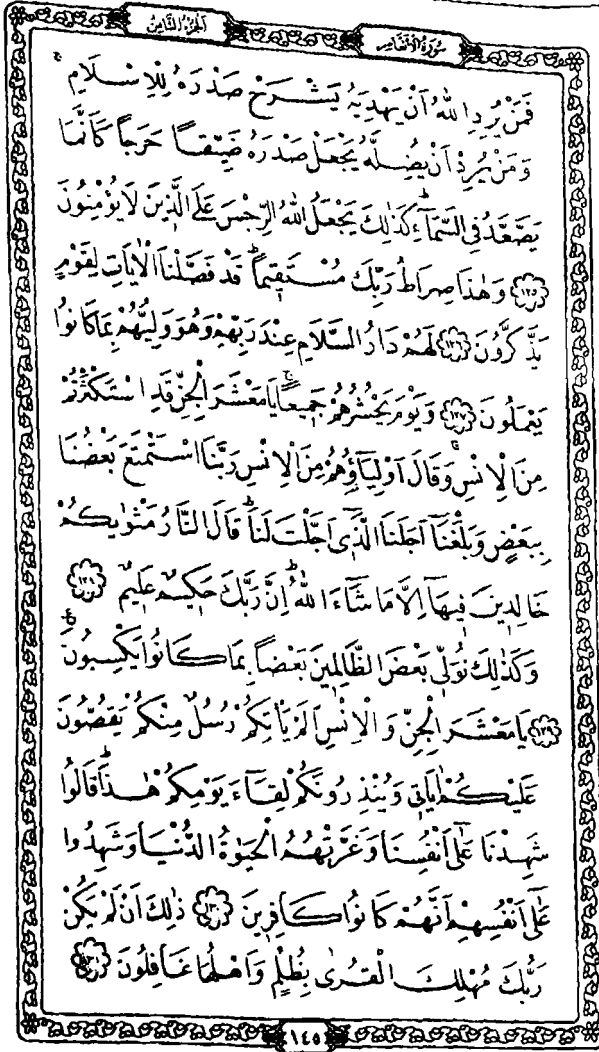 الجزء الثامن
سورة الانعام
فَمَنْ يُرِدِ اللهُ اَنْ يَهْدِيَهُ يَشْرَحْ صَدْرَهُ لِلْاِسْلَامِ ج
وَمَنْ يُرِدْ اَنْ يُضِلَّهُ يَجْعَلْ صَدْرَهُ ضَيِّقاً حَرَجاً كَاَنَّمَا
يَصَّعَّدُ فِي السَّمَٓاءِ ط كَذٰلِكَ يَجْعَلُ اللهُ الرِّجْسَ عَلَى الَّذِينَ لَا يُؤْمِنُونَ
﴿١٢٥﴾ وَهٰذَا صِرَاطُ رَبِّكَ مُسْتَقِيماً ط قَدْ فَصَّلْنَا الْاٰيَاتِ لِقَوْمٍ
يَذَّكَّرُونَ ﴿١٢٦﴾ لَهُمْ دَارُ السَّلَامِ عِنْدَ رَبِّهِمْ وَهُوَ وَلِيُّهُمْ بِمَا كَانُوا
يَعْمَلُونَ ﴿١٢٧﴾ وَيَوْمَ يَحْشُرُهُمْ جَمِيعاً ج يَا مَعْشَرَ الْجِنِّ قَدِ اسْتَكْثَرْتُمْ
مِنَ الْاِنْسِ ج وَقَالَ اَوْلِيَٓاؤُهُمْ مِنَ الْاِنْسِ رَبَّنَا اسْتَمْتَعَ بَعْضُنَا
بِبَعْضٍ وَبَلَغْنَٓا اَجَلَنَا الَّذِٓي اَجَّلْتَ لَنَا ط قَالَ النَّارُ مَثْوٰيكُمْ
خَالِدِينَ فِيهَٓا اِلَّا مَا شَٓاءَ اللهُ ط اِنَّ رَبَّكَ حَكِيمٌ عَلِيمٌ ﴿١٢٨﴾
وَكَذٰلِكَ نُوَلِّي بَعْضَ الظَّالِمِينَ بَعْضاً بِمَا كَانُوا يَكْسِبُونَ ع
﴿١٢٩﴾ يَا مَعْشَرَ الْجِنِّ وَالْاِنْسِ اَلَمْ يَأْتِكُمْ رُسُلٌ مِنْكُمْ يَقُصُّونَ
عَلَيْكُمْ اٰيَاتِي وَيُنْذِرُونَكُمْ لِقَٓاءَ يَوْمِكُمْ هٰذَا ط قَالُوا
شَهِدْنَا عَلٰٓى اَنْفُسِنَا وَغَرَّتْهُمُ الْحَيٰوةُ الدُّنْيَا وَشَهِدُوا
عَلٰٓى اَنْفُسِهِمْ اَنَّهُمْ كَانُوا كَافِرِينَ ﴿١٣٠﴾ ذٰلِكَ اَنْ لَمْ يَكُنْ
رَبُّكَ مُهْلِكَ الْقُرٰى بِظُلْمٍ وَاَهْلُهَا غَافِلُونَ ﴿١٣١﴾
١٤٥